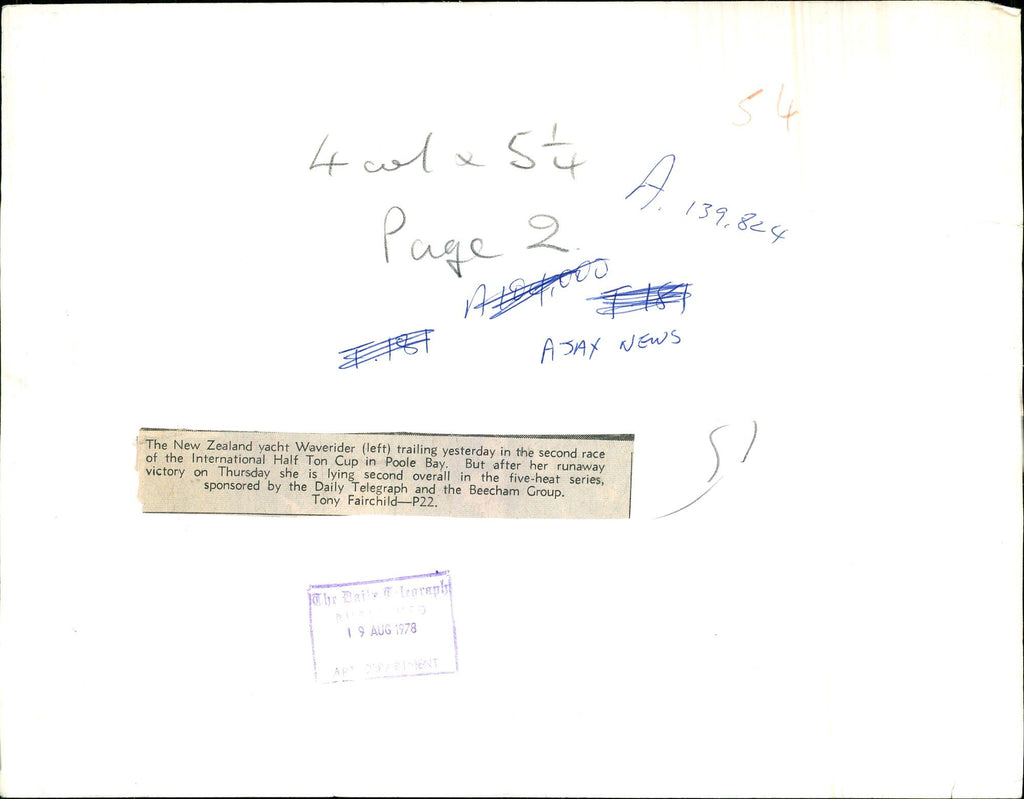 54
4 col x 5 1/4
A. 139,824
Page 2.
T.181
AJAX NEWS
The New Zealand yacht Waverider (left) trailing yesterday in the second race
of the International Half Ton Cup in Poole Bay. But after her runaway
victory on Thursday she is lying second overall in the five-heat series,
sponsored by the Daily Telegraph and the Beecham Group.
Tony Fairchild—P22.
51
The Daily Telegraph
19 AUG 1978
ART DEPARTMENT